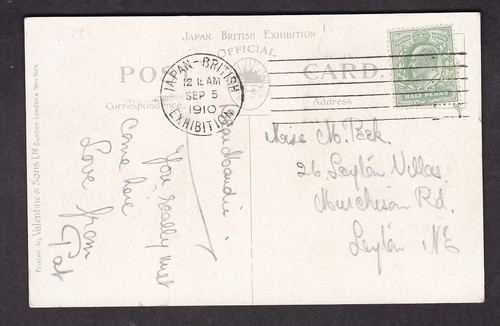 JAPAN BRITISH EXHIBITION
OFFICIAL
POST CARD.
Correspondence
Address
JAPAN-BRITISH
EXHIBITION
12 15 AM
SEP 5
1910
HALF PENNY
Dear Maudie
You really must
come here
Love from
Pat
Miss M. Peek.
26 Leyton Villas.
Murchison Rd.
Leyton NE
Printed by Valentine & Sons Ltd Dundee, London & New York.